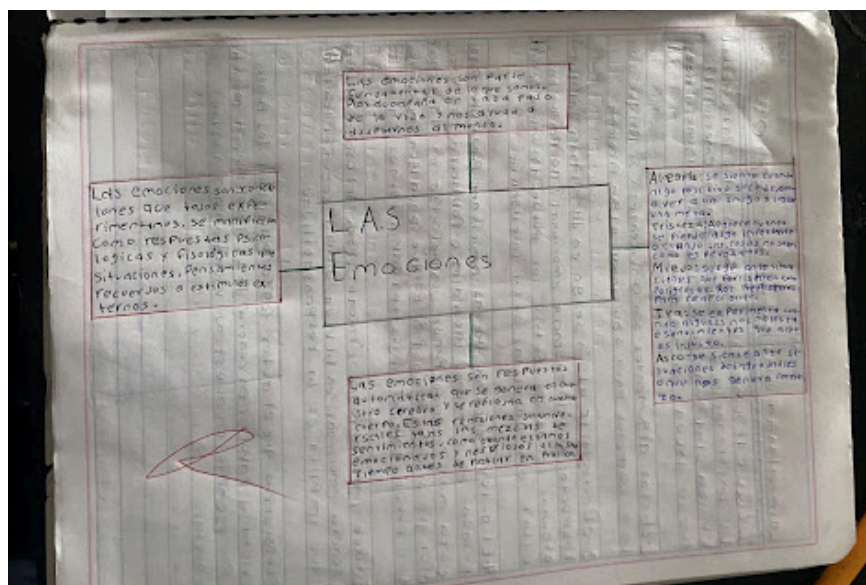 Las emociones son parte
fundamental de lo que somos.
Nos acompaña en cada paso
de la vida y nos ayuda a
adaptarnos al mundo.
Las emociones son reac
iones que todos expe-
rimentamos, se manifiesta
como respuestas psico-
logicas y fisiológicas
situaciones, pensamientos
recuerdos o estimulos ex-
ternos.
LAS
Emociones
Alegria: se siente cuando
algo positivo sucede, como
a ver a un amigo o lograr
una meta.
Tristeza: Aparece cuando
se pierde algo importante
o cuando las cosas no salen
como es
Miedo: surge ante situa
ciones que
peligrosas. Nos
para reaccionar.
Ira: se experimenta cuan
do alguien nos molesta
o sentimientos que algo
es injusto.
Asco: se siente ante si-
tuaciones
o que nos genera
Las emociones son respuestas
automáticas que se genera en nue
stro cerebro y se reflejma en nuestro
cuerpo. Estas reacciones son unive-
rsales las mezclas de
sentimientos, como cuando estamos
emocionados y nerviosos al mismo
tiempo antes de hablar en público